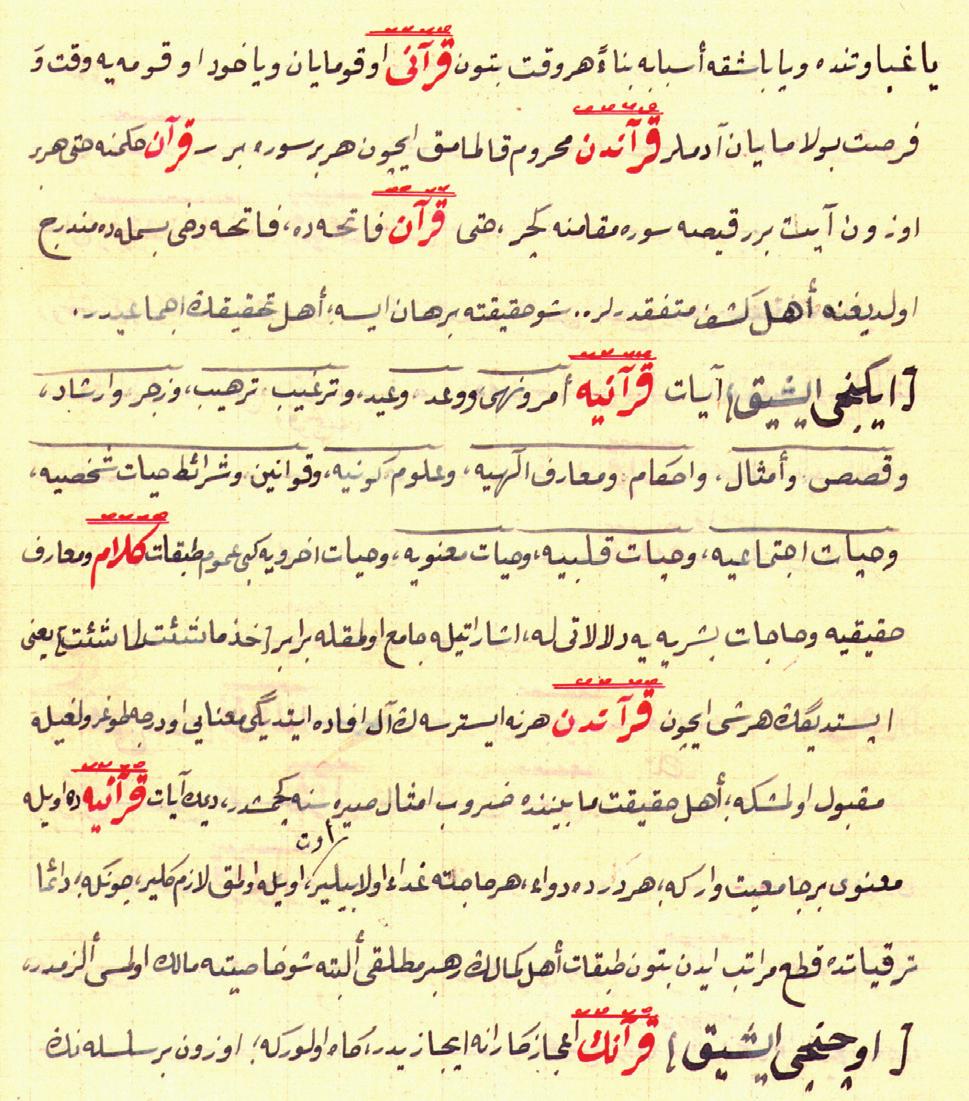 يا غباوتنده ويا باشقه أسبابه بناءً هر وقت بتون قرآنى اوقومايان ويا خود اوقومه يه وقت وَ
فرصت بولامايان آدملر قرآندن محروم قالمامق ايچون هر بر سوره بر قرآن حكمنه حتى هر بر
اوزون آيت بر قيصه سوره مقامنه كچر ، حتى قرآن فاتحه ده ، فاتحه دخى بسمله ده مندرج
اولديغنه أهل كشف متفقدرلر .. شو حقيقته برهان ايسه ؛ أهل تحقيقڭ اجماعيدر .
[ ايكنجى ايشيق ] آيات قرآنيه أمر ونهى ، ووعد وعيد ، وترغيب ترهيب ، وزجر وارشاد ،
وقصص وأمثال ، واحكام ومعارف الٓهيه ، وعلوم كونيه ، وقوانين وشرائط حيات شخصيه ،
وحيات اجتماعيه ، وحيات قلبيه ، وحيات معنويه ، وحيات اخرويه كبى عموم طبقات كلام ومعارف
حقيقيه وحاجات بشريه يه دلالاتى له ، اشاراتيله جامع اولمقله برابر [ خذ ما شئت لما شئت ] يعنى
ايستديگڭ هر شى ايچون قرآندن هر نه ايسترسه ڭ آل افاده ايتديگى معنايى او درجه طوغرولغيله
مقبول اولمشكه ؛ أهل حقيقت مابيننده ضروب امثال صيره سنه كچمشدر ، ديمك آيات قرآنيه ده اويله
معنوى بر جامعيت واركه ؛ هر درده دواء ، هر حاجته غداء اولابيلير ، أوت اويله اولمق لازم كلير ، چونكه ؛ دائما
ترقياتده قطع مراتب ايدن بتون طبقات أهل كمالڭ رهبر مطلقى ألبته شو خاصيته مالك اولمسى ألزمدر ،
[ اوچنجى ايشيق ] قرآنك اعجازكارانه ايجازيدر ، كاه اولوركه ؛ اوزون بر سلسله نڭ